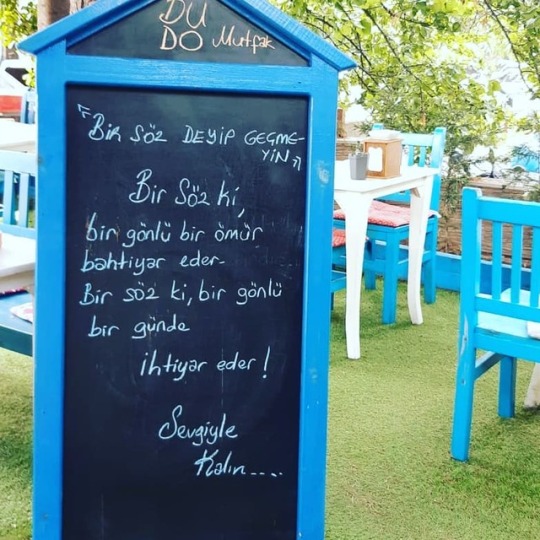 DU
DO Mutfak
"BİR SÖZ DEYİP GEÇME-
YİN"
Bir Söz ki,
bir gönlü bir ömür
bahtiyar eder-
Bir söz ki, bir gönlü
bir günde
ihtiyar eder!
Sevgiyle
Kalın.....